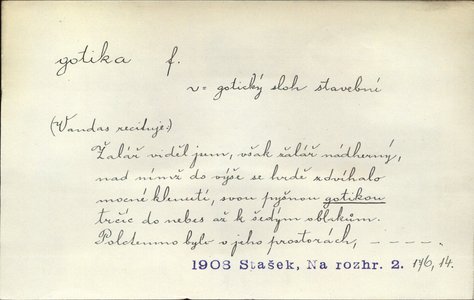 gotika f.
v = gotický sloh stavební
(Vandas recituje:)
Žalář viděl jsem, však žalář nádherný,
nad nímž do výše se hrdě zdvíhalo
mocné klenutí, svou pyšnou gotikou
trčíc do nebes až k šedým oblakům.
Polotemno bylo v jeho prostorách, – – – –.
1908 Stašek, Na rozhr. 2. 176, 14.